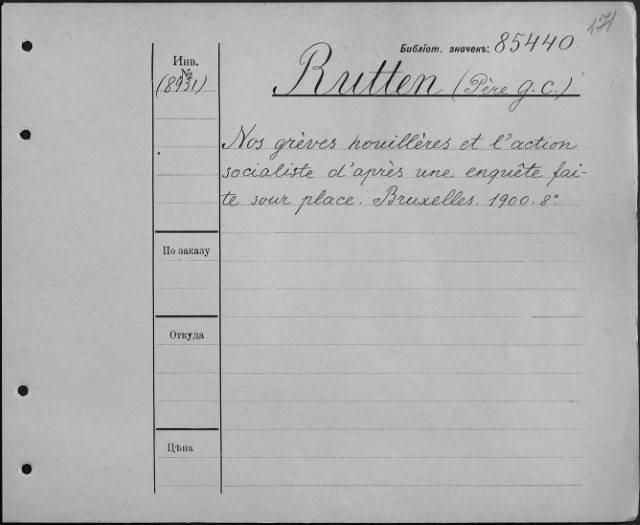 171
Библіот. значекъ: 85440
Инв. №
(8931)
Rutten (Père G. C.)
Nos grèves houillères et l'action
socialiste d'après une enquête fai-
te sour place. Bruxelles. 1900. 8°
По заказу
Откуда
Цѣна